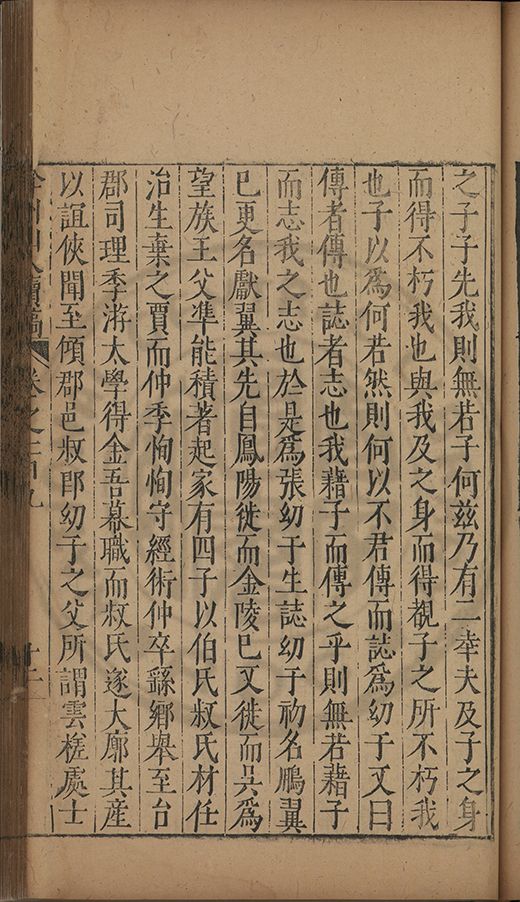 之子子先我則無若子何兹乃有二幸夫及子之身
而得不朽我也與我及之身而得覩子之所不朽我
也子以爲何若然則何以不君傳而誌爲幼于又曰
傳者傳也誌者志也我藉子而傳之乎則無若藉子
而志我之志也於是爲張幼于生誌幼于初名鵬翼
已更名獻翼其先自鳳陽徙而金陵已又徙而吳爲
望族王父準能積著起家有四子以伯氏叔氏材任
治生棄之賈而仲季恂恂守經術仲卒繇鄉舉至台
郡司理季游太學得金吾幕職而叔氏遂大廓其産
以誼俠聞至傾郡邑叔即幼于之父所謂雲槎處士
弇州山人續稿 卷之一百四九 十二